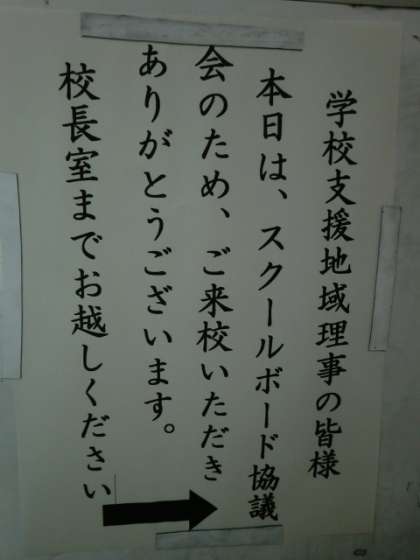 学校支援地域理事の皆様
本日は、スクールボード協議
会のため、ご来校いただき
ありがとうございます。
校長室までお越しください